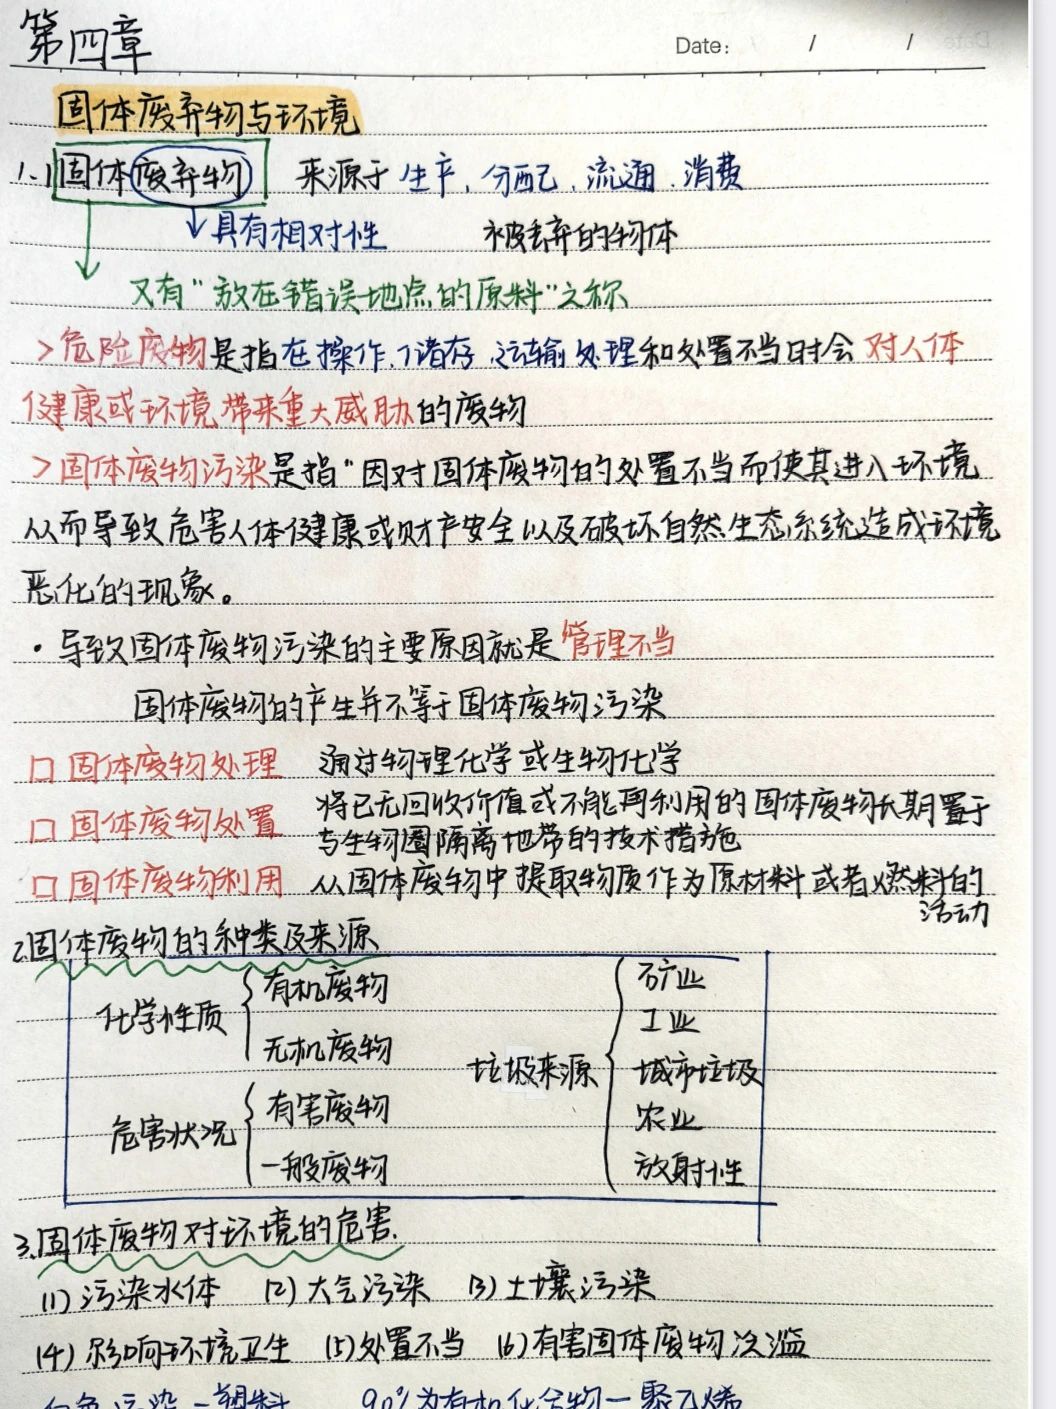 第四章
Date: / /
固体废弃物与环境
1.1 固体废弃物 来源于生产、分配、流通、消费
具有相对性 被丢弃的物体
又有"放在错误地点的原料"之称
>危险废物是指在操作、储存、运输、处理和处置不当时会对人体
健康或环境带来重大威胁的废物
>固体废物污染是指"因对固体废物的处置不当而使其进入环境
从而导致危害人体健康或财产安全以及破坏自然生态系统造成环境
恶化的现象。
·导致固体废物污染的主要原因就是管理不当
固体废物的产生并不等于固体废物污染
口 固体废物处理 通过物理化学或生物化学
口 固体废物处置 将已无回收价值或不能再利用的固体废物长期置于
与生物圈隔离地带的技术措施
口 固体废物利用 从固体废物中提取物质作为原材料或者燃料的
活动
2.固体废物的种类及来源
化学性质 有机废物
无机废物
危害状况 有害废物
一般废物
垃圾来源 矿业
工业
城市垃圾
农业
放射性
3.固体废物对环境的危害.
(1)污染水体 (2)大气污染 (3)土壤污染
(4)影响环境卫生 (5)处置不当 (6)有害固体废物泛滥
白色污染-塑料 90%为有机化合物-聚乙烯